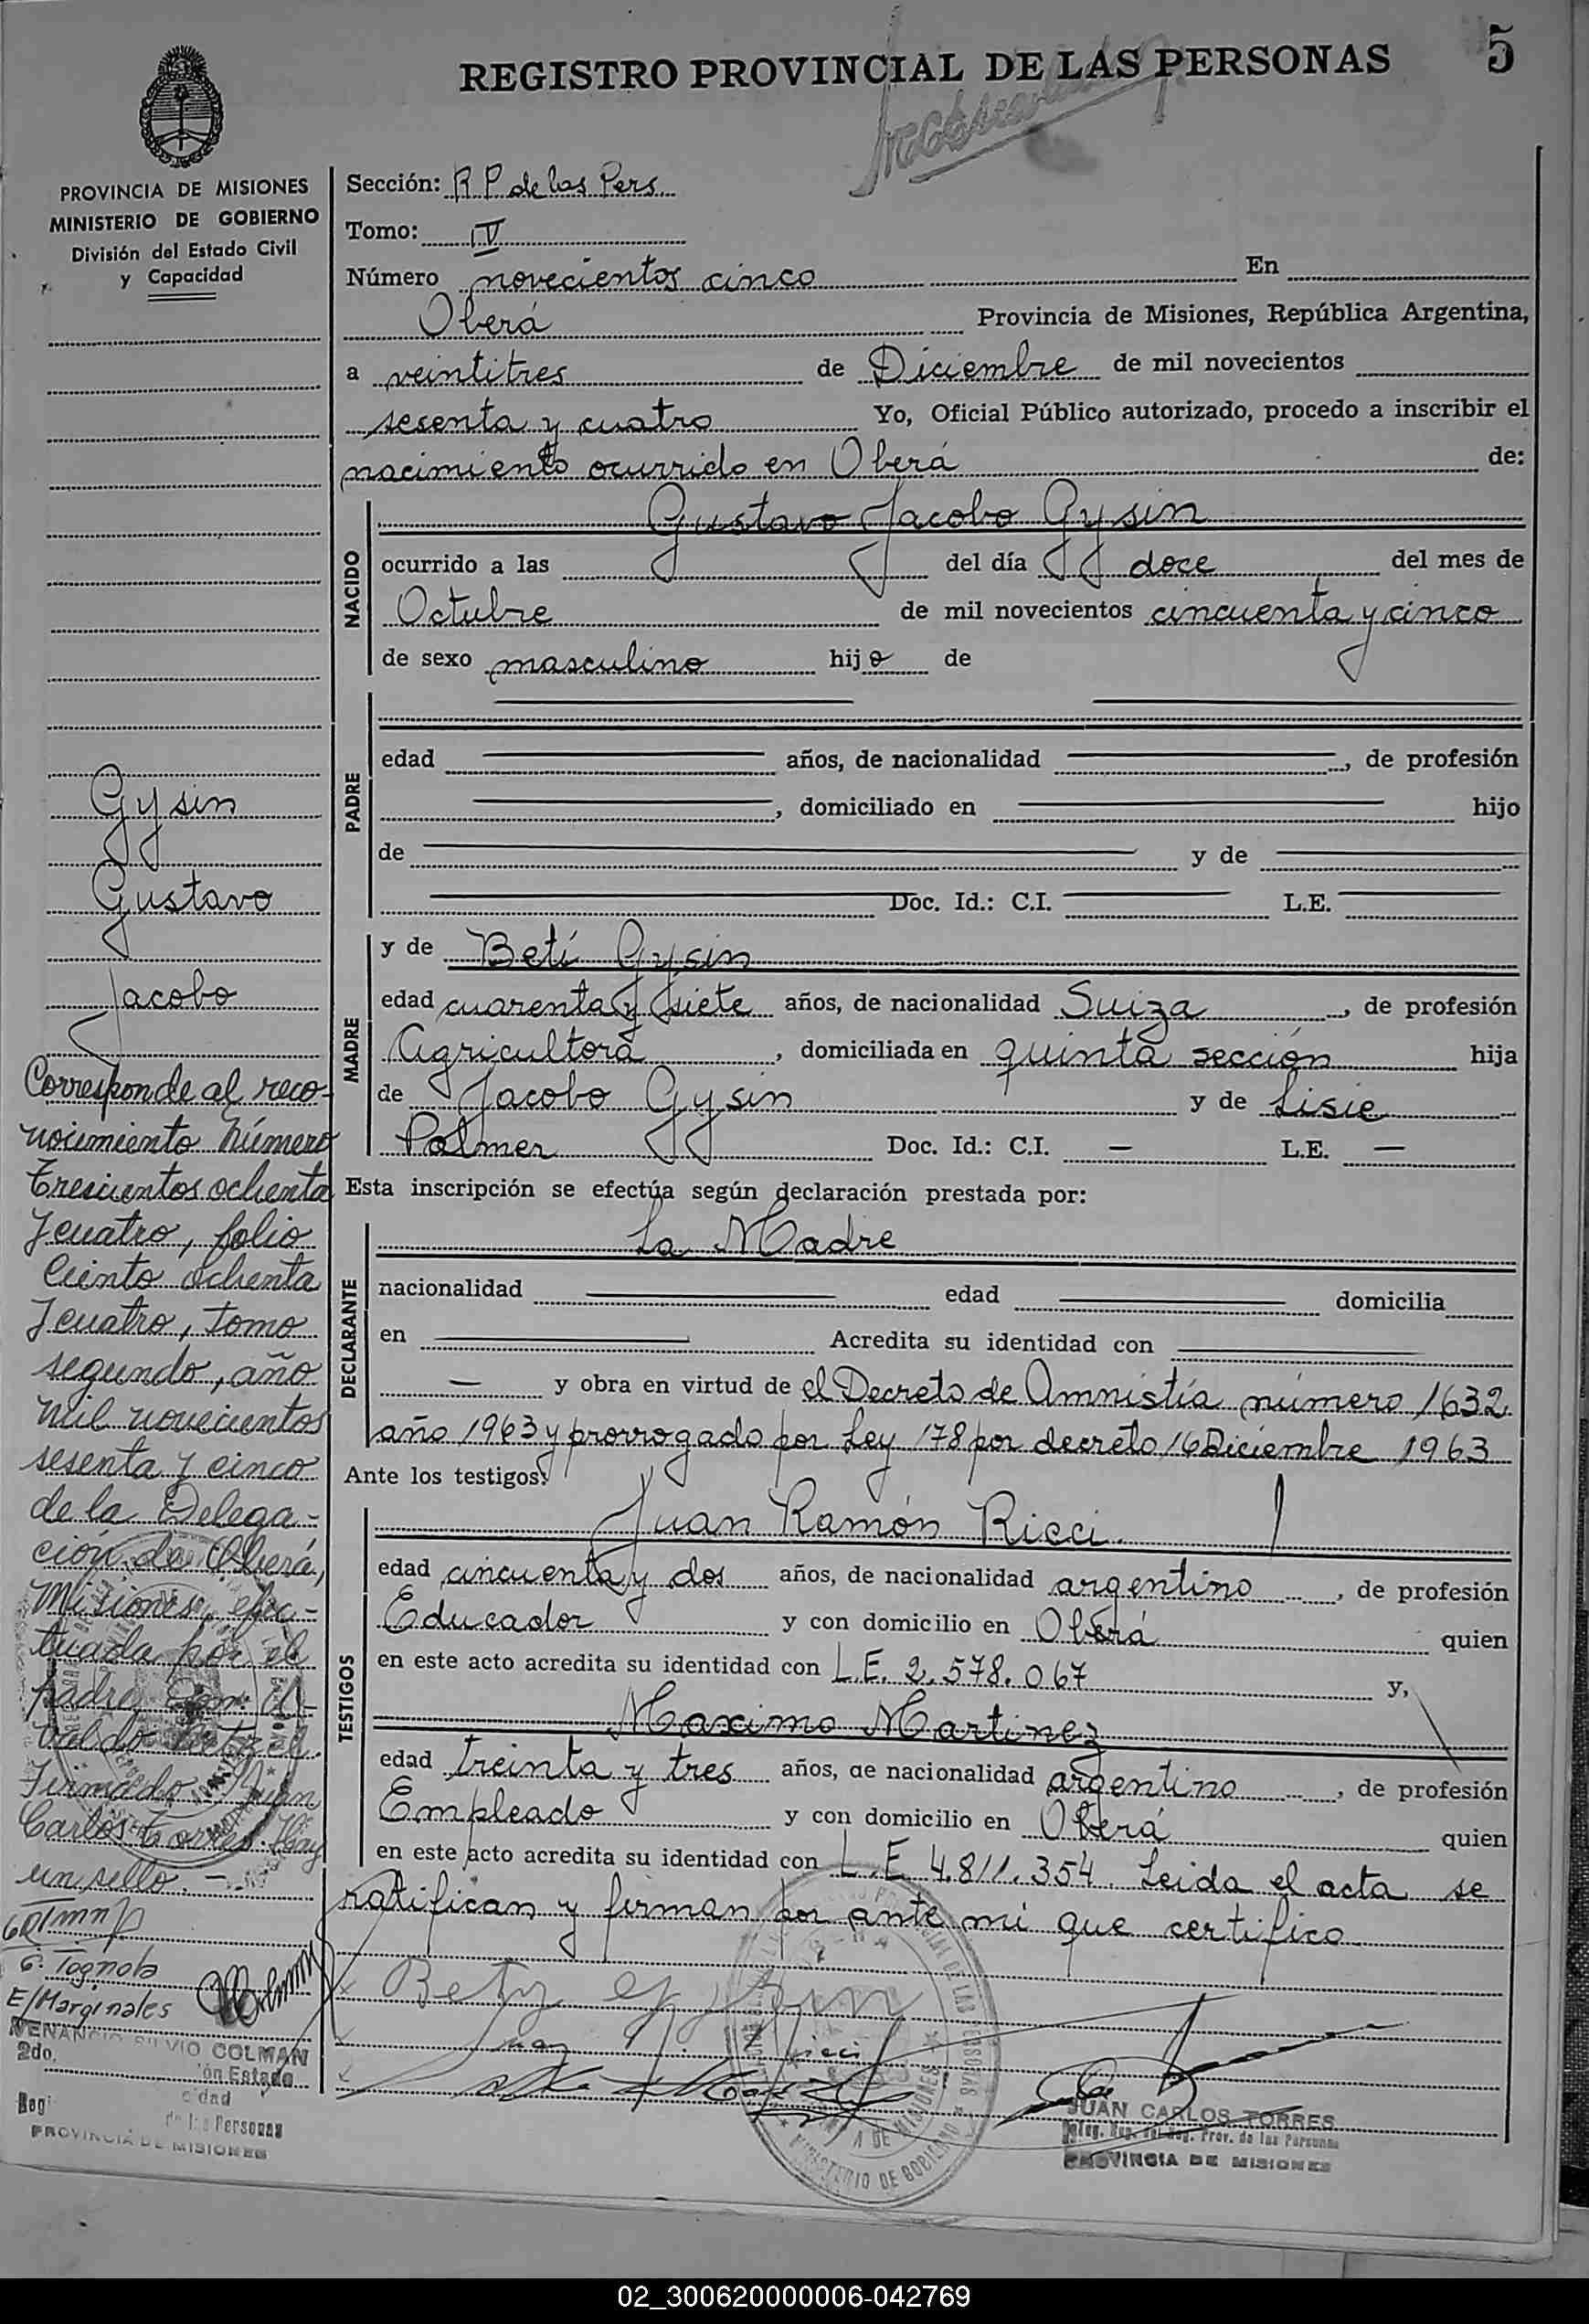 REGISTRO PROVINCIAL DE LAS PERSONAS
5
PROVINCIA DE MISIONES
MINISTERIO DE GOBIERNO
División del Estado Civil
y Capacidad
Sección: R P de las Pers.
Tomo: IV
Número novecientos cinco En
Oberá Provincia de Misiones, República Argentina,
a veintitres de Diciembre de mil novecientos
sesenta y cuatro Yo, Oficial Público autorizado, procedo a inscribir el
nacimiento ocurrido en Oberá de:
NACIDO
Gustavo Jacobo Gysin
ocurrido a las del día doce del mes de
Octubre de mil novecientos cincuenta y cinco
de sexo masculino hijo de
PADRE
edad años, de nacionalidad , de profesión
, domiciliado en hijo
de y de
Doc. Id.: C.I. L.E.
MADRE
y de Beti Gysin
edad cuarenta y siete años, de nacionalidad Suiza , de profesión
Agricultora , domiciliada en quinta sección hija
de Jacobo Gysin y de Lisie
Palmer Doc. Id.: C.I. — L.E. —
Esta inscripción se efectúa según declaración prestada por:
DECLARANTE
La Madre
nacionalidad edad domicilia
en Acredita su identidad con
— y obra en virtud de el Decreto de Amnistía número 1632
año 1963 y prorrogado por Ley 178 por decreto 16 Diciembre 1963
Ante los testigos:
TESTIGOS
Juan Ramón Ricci
edad cincuenta y dos años, de nacionalidad argentino , de profesión
Educador y con domicilio en Oberá quien
en este acto acredita su identidad con L.E. 2.578.067 y,
Maximo Martinez
edad treinta y tres años, de nacionalidad argentino , de profesión
Empleado y con domicilio en Oberá quien
en este acto acredita su identidad con L.E 4.811.354. Leida el acta se
ratifican y firman por ante mi que certifico
Gysin
Gustavo
Jacobo
Corresponde al reco-
nocimiento Número
trescientos ochenta
y cuatro, folio
ciento ochenta
y cuatro, tomo
segundo, año
mil novecientos
sesenta y cinco
de la Delega-
ción de Oberá,
Misiones, efec-
tuada por el
padre, Don
Firmado Juan
Carlos Torres. Hay
un sello.
G. Tognola
E/Marginales
VENANCIO SILVIO COLMAN
2do.
Estado
de las Personas
PROVINCIA DE MISIONES
Bety Gysin
JUAN CARLOS TORRES
Prov. de las Personas
PROVINCIA DE MISIONES
MINISTERIO DE GOBIERNO
02_300620000006-042769